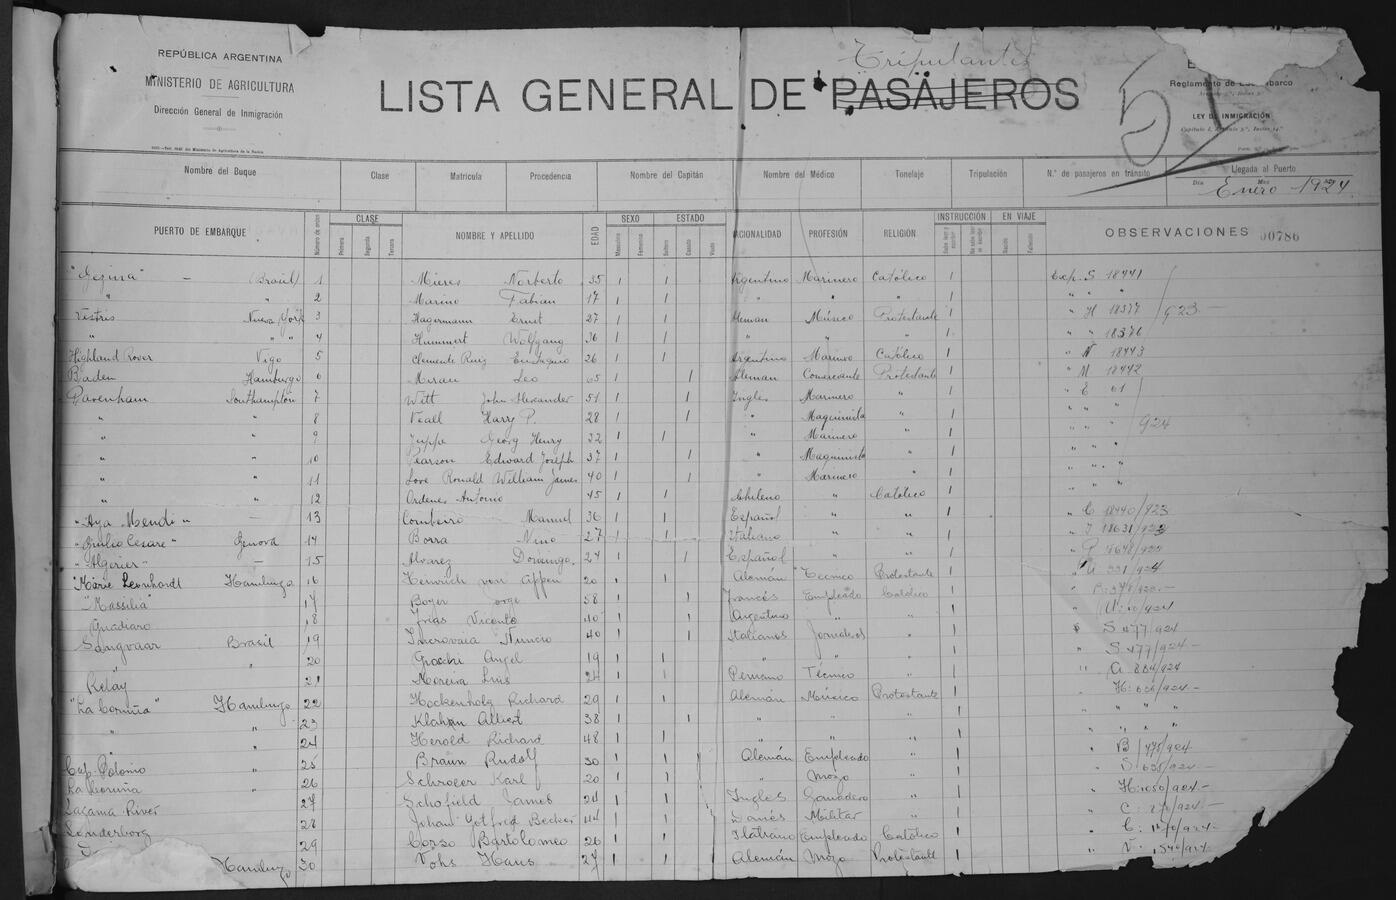 REPÚBLICA ARGENTINA
MINISTERIO DE AGRICULTURA
Dirección General de Inmigración
Tripulantes
LISTA GENERAL DE PASAJEROS
51
Reglamento de barco
LEY DE INMIGRACIÓN
Nombre del Buque Clase Matrícula Procedencia Nombre del Capitán Nombre del Médico Tonelaje Tripulación N.º de pasajeros en tránsito Llegada al Puerto
Día Mes
Enero 1924
PUERTO DE EMBARQUE Número de orden CLASE NOMBRE Y APELLIDO EDAD SEXO ESTADO NACIONALIDAD PROFESIÓN RELIGIÓN INSTRUCCIÓN EN VIAJE OBSERVACIONES 00786
Primera Segunda Tercera Masculino Femenino Soltero Casado Viudo
"Gezina" - (Brasil) 1 Mieres Norberto 35 1 1 Argentino Marinero Católico 1 Exp. S 18441
" " 2 Marino Fabian 17 1 1 " " " 1 " " "
Vestris Nueva York 3 Hagermann Ernst 27 1 1 Aleman Músico Protestante 1 " H 18377 923
" " " 4 Hummert Wolfgang 36 1 1 " " " 1 " " 18376
Highland Rover Vigo 5 Clemente Ruiz Eustaquio 26 1 1 Argentino Marinero Católico 1 " 18443
Baden Hamburgo 6 Miran Leo 65 1 1 Aleman Comerciante Protestante 1 " M 18442
Pavenham Southampton 7 Witt John Alexander 51 1 1 Ingles Marinero " 1 " E 61
" " 8 Veall Harry P. 28 1 1 " Maquinista " 1 " " "
" " 9 Juppe Georg Henry 32 1 1 " Marinero " 1 " " " 924
" " 10 Pearson Edward Joseph 37 1 1 " Maquinista " 1 " " "
" " 11 Love Ronald William James 40 1 1 " Marinero " 1 " " "
" " 12 Ordenes Antonio 45 1 1 Chileno " Católico 1 " " "
"Aya Mendi" - 13 Manuel 36 1 1 Español " " 1 " C 18440/923
"Giulio Cesare" Genova 14 Borra Nino 27 1 1 Italiano " " 1 " 18631/923
"Algerier" - 15 Alvarez Domingo 24 1 1 Español " " 1
"Marie Leonhardt Hamburgo 16 Heinrich von Appen 20 1 1 Aleman Tecnico Protestante 1 " 331/924
"Massilia" 17 Boyer Jorge 58 1 1 Francés Empleado Católico 1
Guadiaro 18 Frias Vicente 40 1 1 Argentino " 1
Sangvaar Brasil 19 Nuncio 40 1 1 Italianos Jornaleros " 1 S 477/924
" " 20 Angel 19 1 1 " " " 1 S 477/924
Relay 21 Moreira Luis 24 1 1 Peruano Técnico " 1 " A 884/924
"La Coruña" Hamburgo 22 Hockenholz Richard 29 1 1 Alemán Músico Protestante 1 " H: 636/924
" " 23 Klahan Albert 38 1 1 " " " 1 " " " "
" " 24 Herold Richard 48 1 1 " " " 1 " " " "
Cap Polonio " 25 Braun Rudolf 30 1 1 Alemán Empleado " 1 " B 475/924
La Coruña " 26 Schroeer Karl 20 1 1 " Mozo " 1 " S 635/924
Lagama River 27 Schofield James 24 1 1 Inglés Ganadero " 1 " H: 1050/924
Sonderborg 28 Johan Gotfred Becker 44 1 1 Danés Militar " 1 " C:
29 Corso Bartolomeo 26 1 1 Empleado Católico 1 " C:
Hamburgo 30 Vöhs Hans 27 1 1 Alemán Mozo Protestante 1 " V.